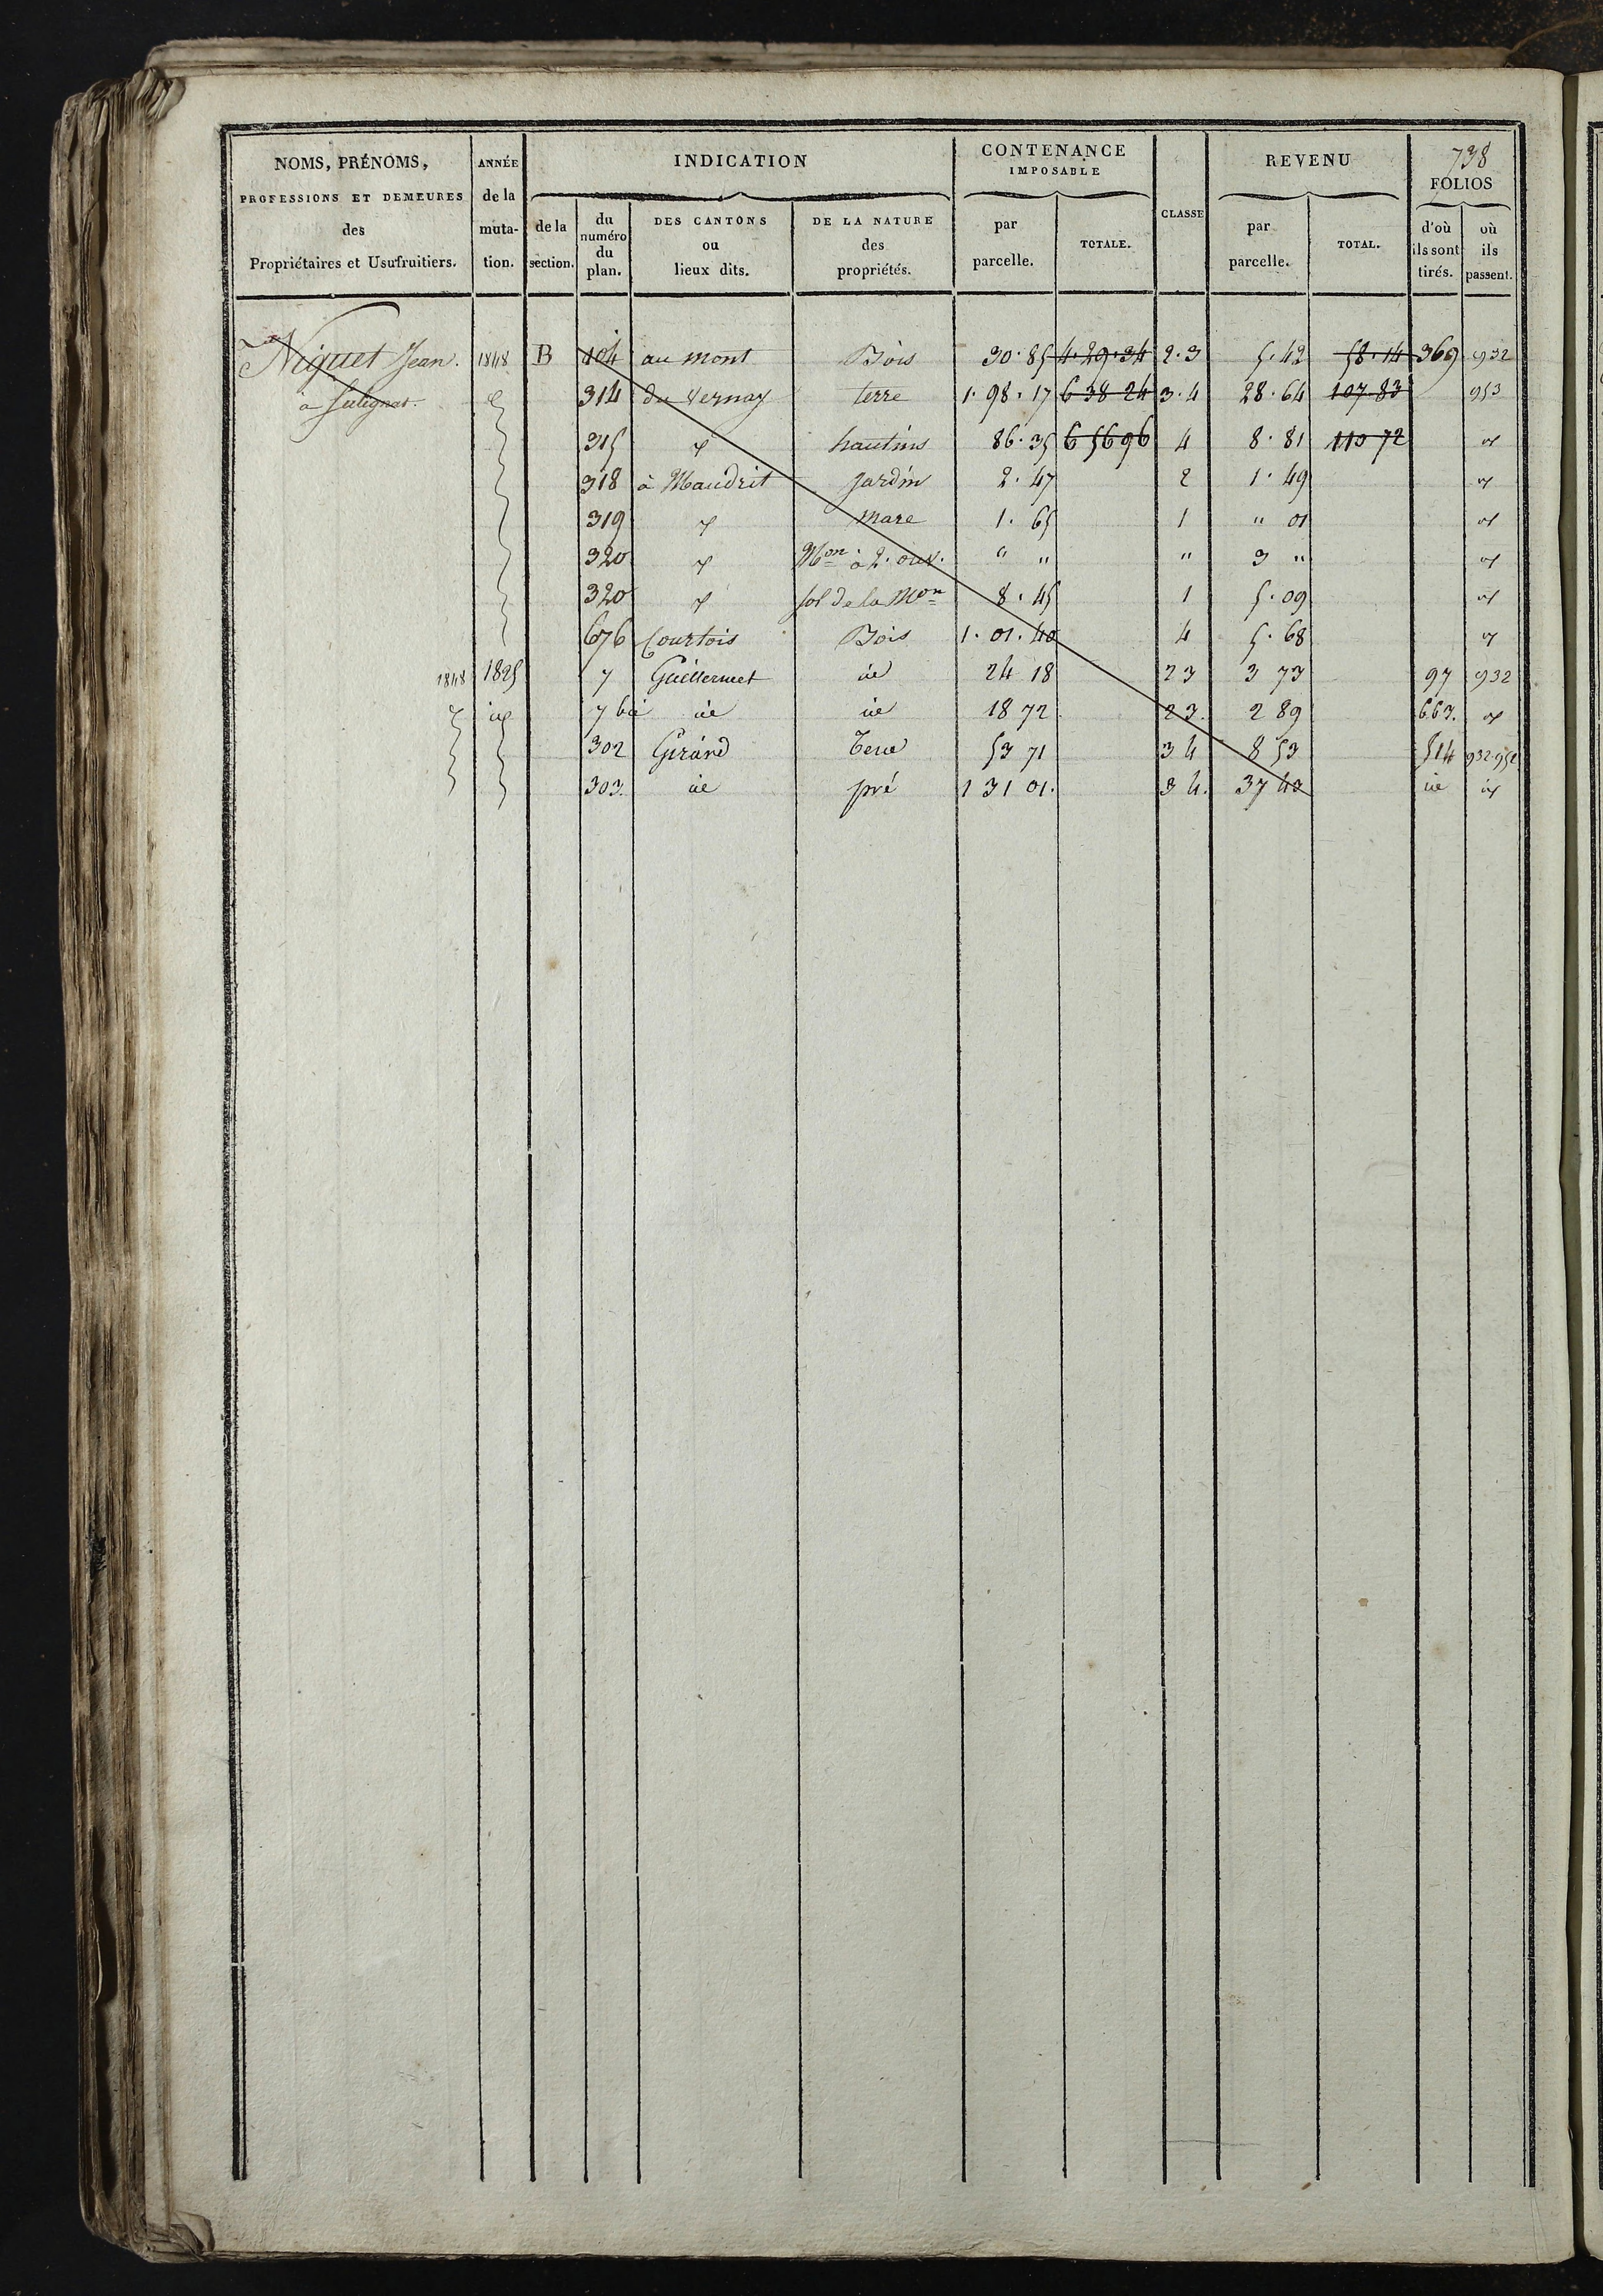 738
NOMS, PRÉNOMS, PROFESSIONS ET DEMEURES des Propriétaires et Usufruitiers.
ANNÉE de la muta- tion.
INDICATION
de la section.
du numéro du plan.
DES CANTONS ou lieux dits.
DE LA NATURE des propriétés.
CONTENANCE IMPOSABLE
par parcelle.
TOTALE.
CLASSE
REVENU
par parcelle.
TOTAL.
FOLIOS
d'où ils sont tirés.
où ils passent.
Niguet Jean. 1848 B 104 au mont Bois 30.85 4.29.34 2.3 5.42 58.14 369 932
à 314 du Vernay terre 1.98.17 6 38 24 3.4 28.64 107.83 953
315 hautins 86.35 6 56 96 4 8.81 110 72
318 à Maudrit Jardin 2.47 2 1.49
319 mare 1.65 1 " 01
320 Mon à 2. ouv. " " " 3 "
320 sol de la Mon 8.45 1 5.09
676 Courtois Bois 1.01.40 4 5.68
1848 1825 7 Guillermet id 24 18 2 3 3 73 97 932
id 7 bis id id 18 72 2 3. 2 89 663.
302 Girard Terre 53 71 3 4 8 53 514 932.952
303. id pré 1 31 01. 3 4. 37 40 id id